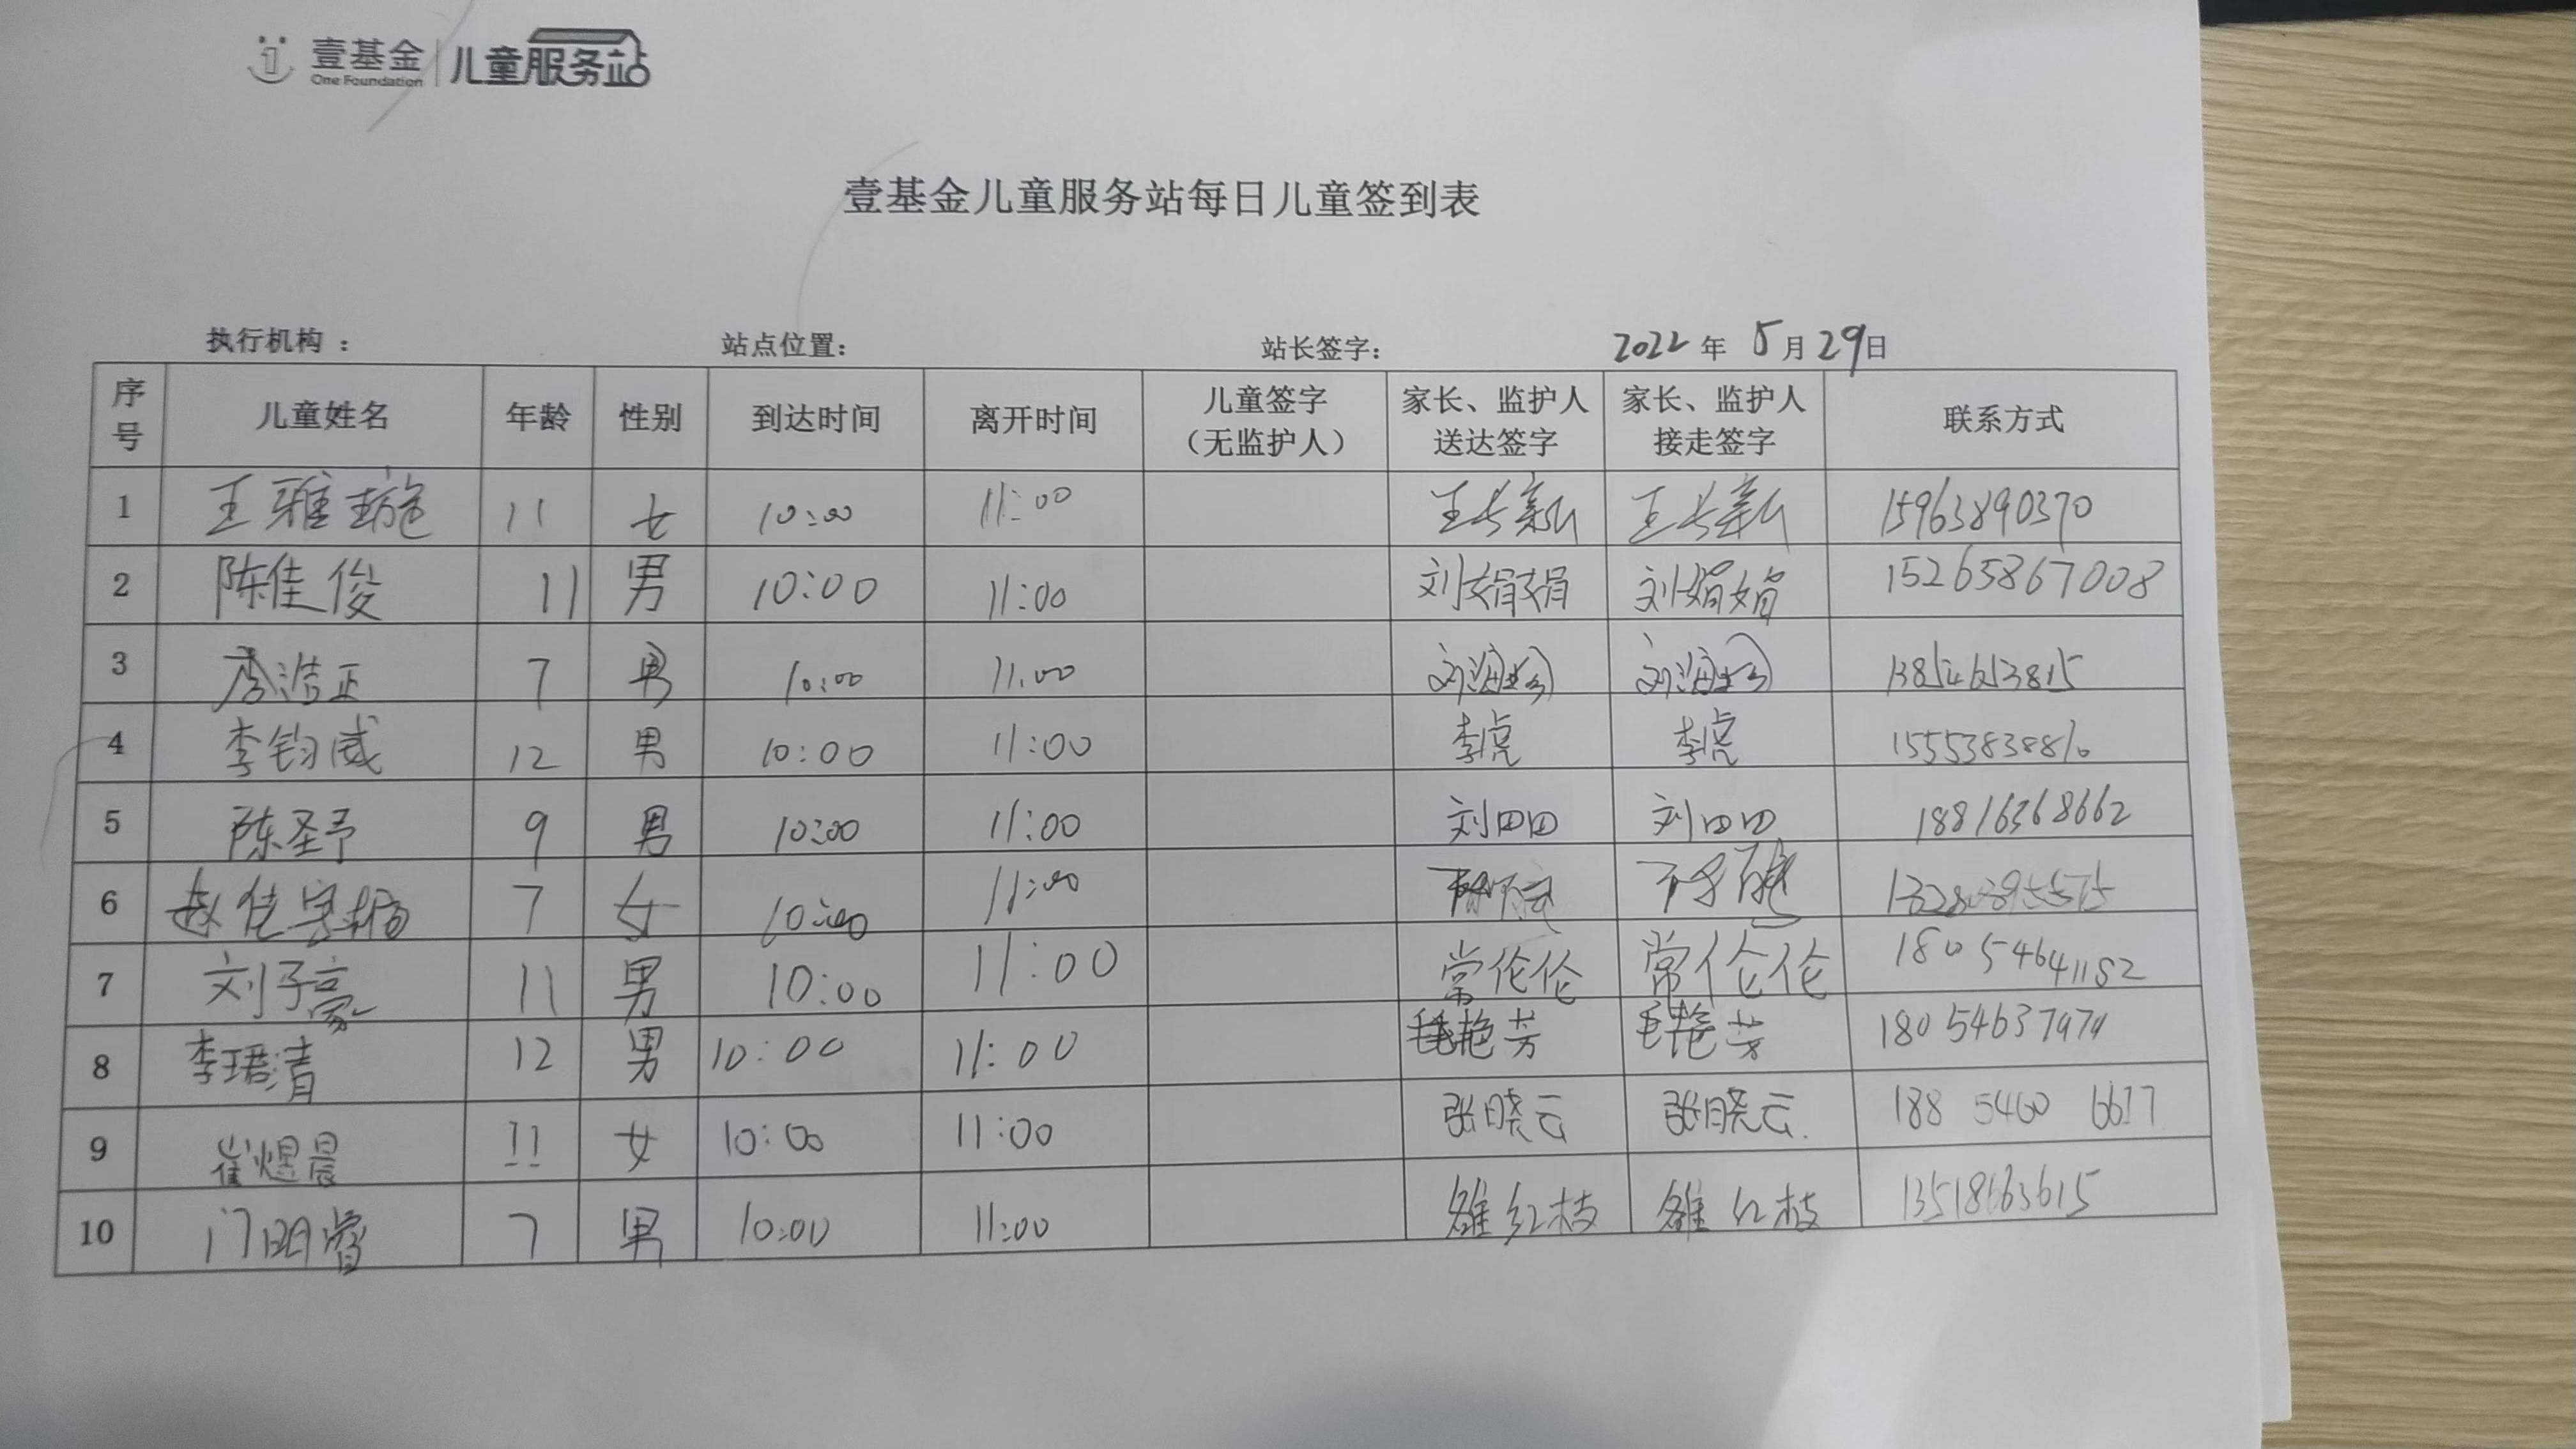 壹基金 儿童服务站
One Foundation
壹基金儿童服务站每日儿童签到表
执行机构： 站点位置： 站长签字： 2022年 5月29日
序号 儿童姓名 年龄 性别 到达时间 离开时间 儿童签字（无监护人） 家长、监护人送达签字 家长、监护人接走签字 联系方式
1 王雅璇 11 女 10:00 11:00 15963890370
2 陈佳俊 11 男 10:00 11:00 刘娟娟 刘娟娟 15265867008
3 李浩正 7 男 10:00 11:00 13854653815
4 李钧威 12 男 10:00 11:00 李虎 李虎 15553838810
5 陈圣予 9 男 10:00 11:00 刘田田 刘田田 18816368662
6 7 女 10:00 11:00
7 刘子豪 11 男 10:00 11:00 常伦伦 常伦伦 18054641182
8 李珺清 12 男 10:00 11:00 毛艳芳 毛艳芳 18054637979
9 崔煜晨 11 女 10:00 11:00 张晓云 张晓云 188 5460 6617
10 门明睿 7 男 10:00 11:00 雒红枝 雒红枝 13518663615